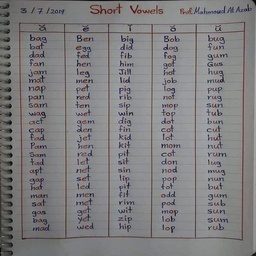 3/7/2019 Short Vowels Prof. Mahmoud Al Azab
ă ĕ ĭ ŏ ŭ
bag Ben big Bob bug
bat egg did dog fun
dad fed fib fog gum
fan hen him got Gus
jam leg Jill hot hug
mat men lid job mud
nap pet pig log pup
pan red rib not rug
ran ten sip mop sun
wag wet win top tub
act gem dig dot bun
cap den fin cot cut
fad jet kid lot hut
Pam hen kit mom nut
Sam red pit cot rum
tad let sit don lug
apt net sin nod mug
gap set lip pop nun
hat led pit tot but
man men fit odd gum
sat met rim pod sub
gas get wit mop sun
bag yet zip lob sum
mad wed hip lop rub